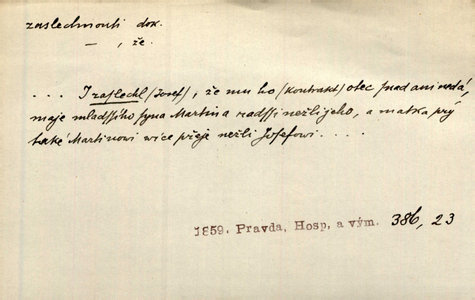 zaslechnouti dok.
— , že.
... I zaslechl /Josef/, že mu ho /kontrakt/ otec snad ani nedá,
maje mladssjho syna Martina radssi nežli jeho, a matka prý
také Martinowi wíce přeje nežli Josefowi ....
1859. Pravda, Hosp. a vým. 386, 23